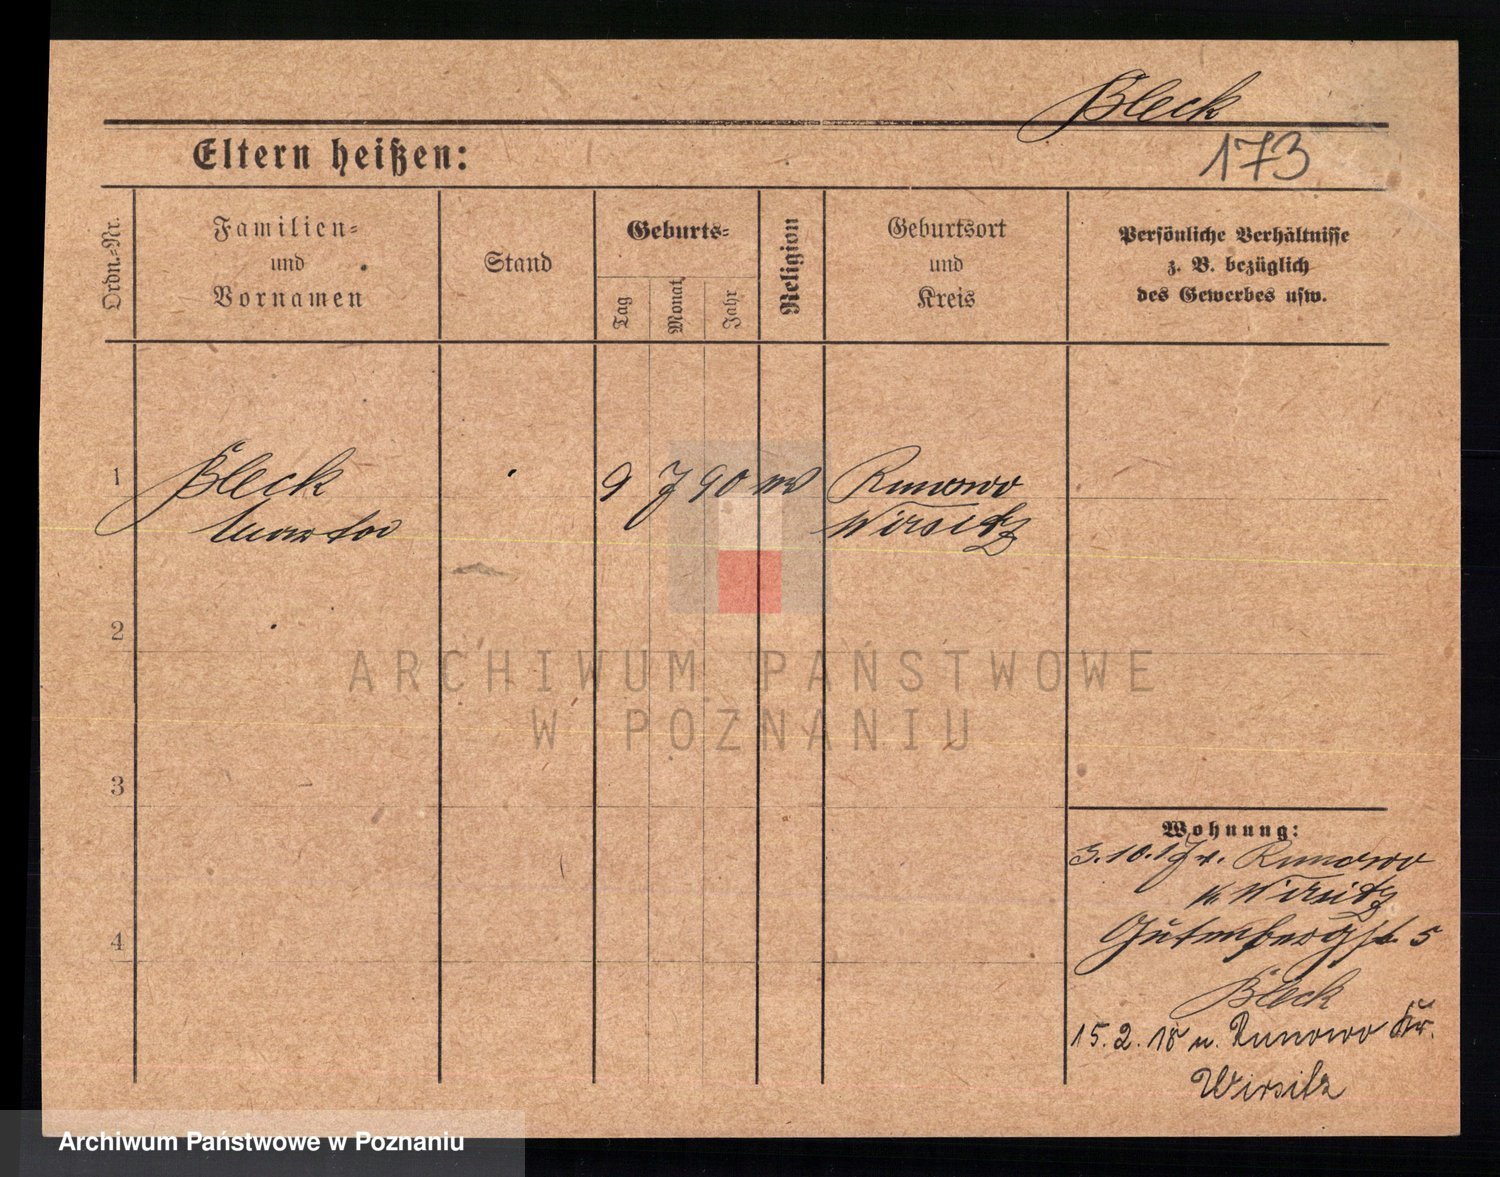 Bleck
Eltern heißen:
173
Ordn.-Nr.
Familien-
und
Vornamen
Stand
Geburts-
Tag
Monat
Jahr
Religion
Geburtsort
und
Kreis
Persönliche Verhältnisse
z. B. bezüglich
des Gewerbes usw.
1
Bleck
9 7 90
Runowo
Wirsitz
2
ARCHIWUM PAŃSTWOWE
W POZNANIU
3
Wohnung:
3.10.17 v. Runowo
K. Wirsitz
Gutenbergst. 5
Bleck
4
15.2.18 n. Runowo Kr.
Wirsitz
Archiwum Państwowe w Poznaniu